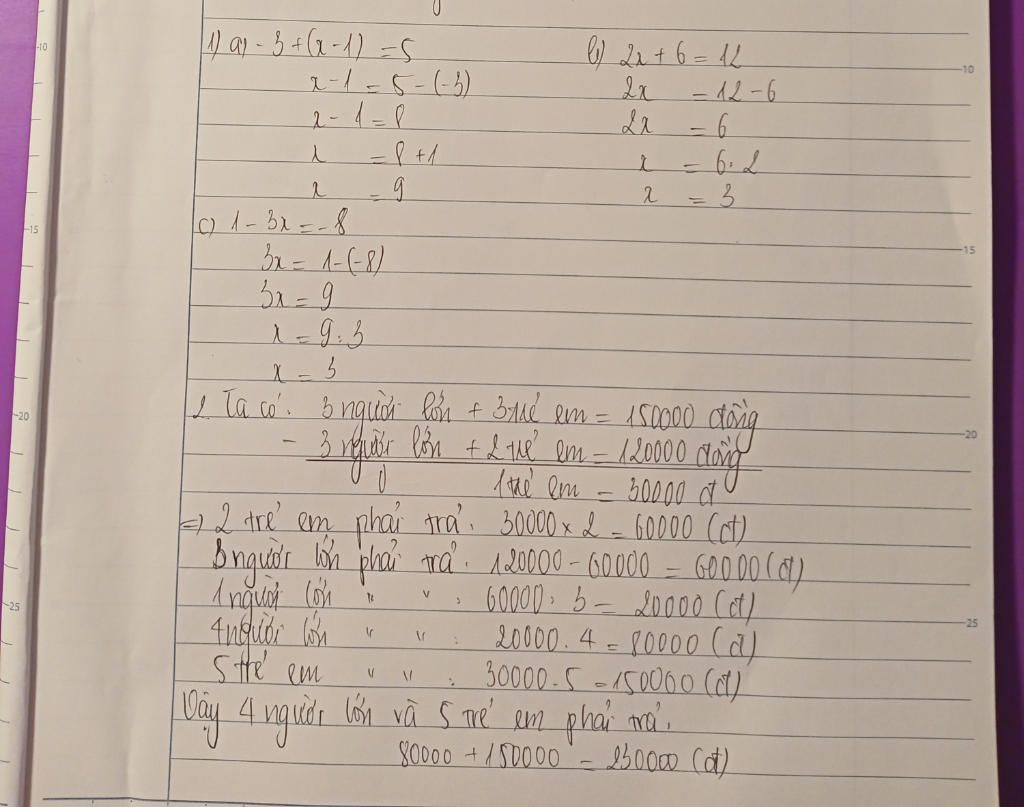 1) a) - 3 + (x - 1) = 5
x - 1 = 5 - (-3)
x - 1 = 8
x = 8 + 1
x = 9
b) 2x + 6 = 12
2x = 12 - 6
2x = 6
x = 6 : 2
x = 3
c) 1 - 3x = - 8
3x = 1 - (-8)
3x = 9
x = 9 : 3
x = 3
2 Ta có: 3 người lớn + 3 trẻ em = 150000 đồng
- 3 người lớn + 2 trẻ em = 120000 đồng
0 1 trẻ em = 30000 đ
=> 2 trẻ em phải trả: 30000 x 2 = 60000 (đ)
3 người lớn phải trả: 120000 - 60000 = 60000 (đ)
1 người lớn " " : 60000 : 3 = 20000 (đ)
4 người lớn " " : 20000 . 4 = 80000 (đ)
5 trẻ em " " : 30000 . 5 = 150000 (đ)
Vậy 4 người lớn và 5 trẻ em phải trả:
80000 + 150000 = 230000 (đ)
10
15
20
25
10
15
20
25